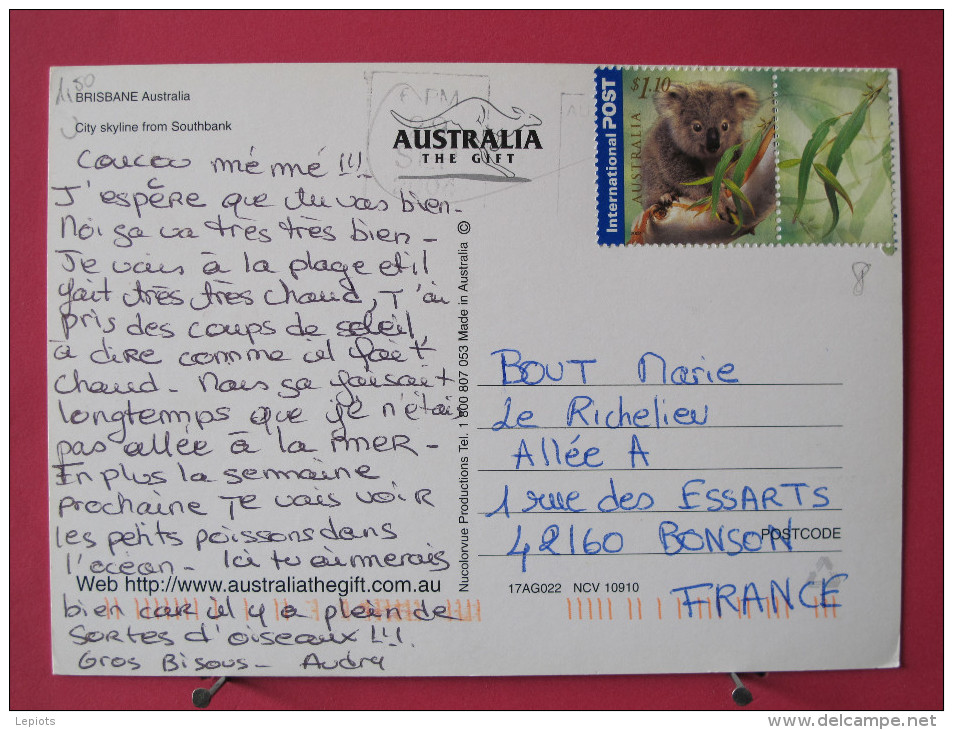 1,50
BRISBANE Australia
City skyline from Southbank
AUSTRALIA
THE GIFT
International POST
$1.10
AUSTRALIA
Coucou mémé !!!
J'espère que tu vas bien -
Moi ça va très très bien -
Je vais à la plage et il
fait très très chaud, J'ai
pris des coups de soleil,
à dire comme il fait
chaud - Mais ça faisait
longtemps que je n'étais
pas allée à la mer -
En plus la semaine
prochaine Je vais voir
les petits poissons dans
l'océan - Ici tu aimerais
Web http://www.australiathegift.com.au
bien car il y a plein de
sortes d'oiseaux !!!
Gros Bisous - Audry
Nucolorvue Productions Tel. 1 800 807 053 Made in Australia ©
8
BOUT Marie
Le Richelieu
Allée A
1 rue des ESSARTS
42160 BONSON
POSTCODE
FRANCE
17AG022 NCV 10910
Lepiots
www.delcampe.net